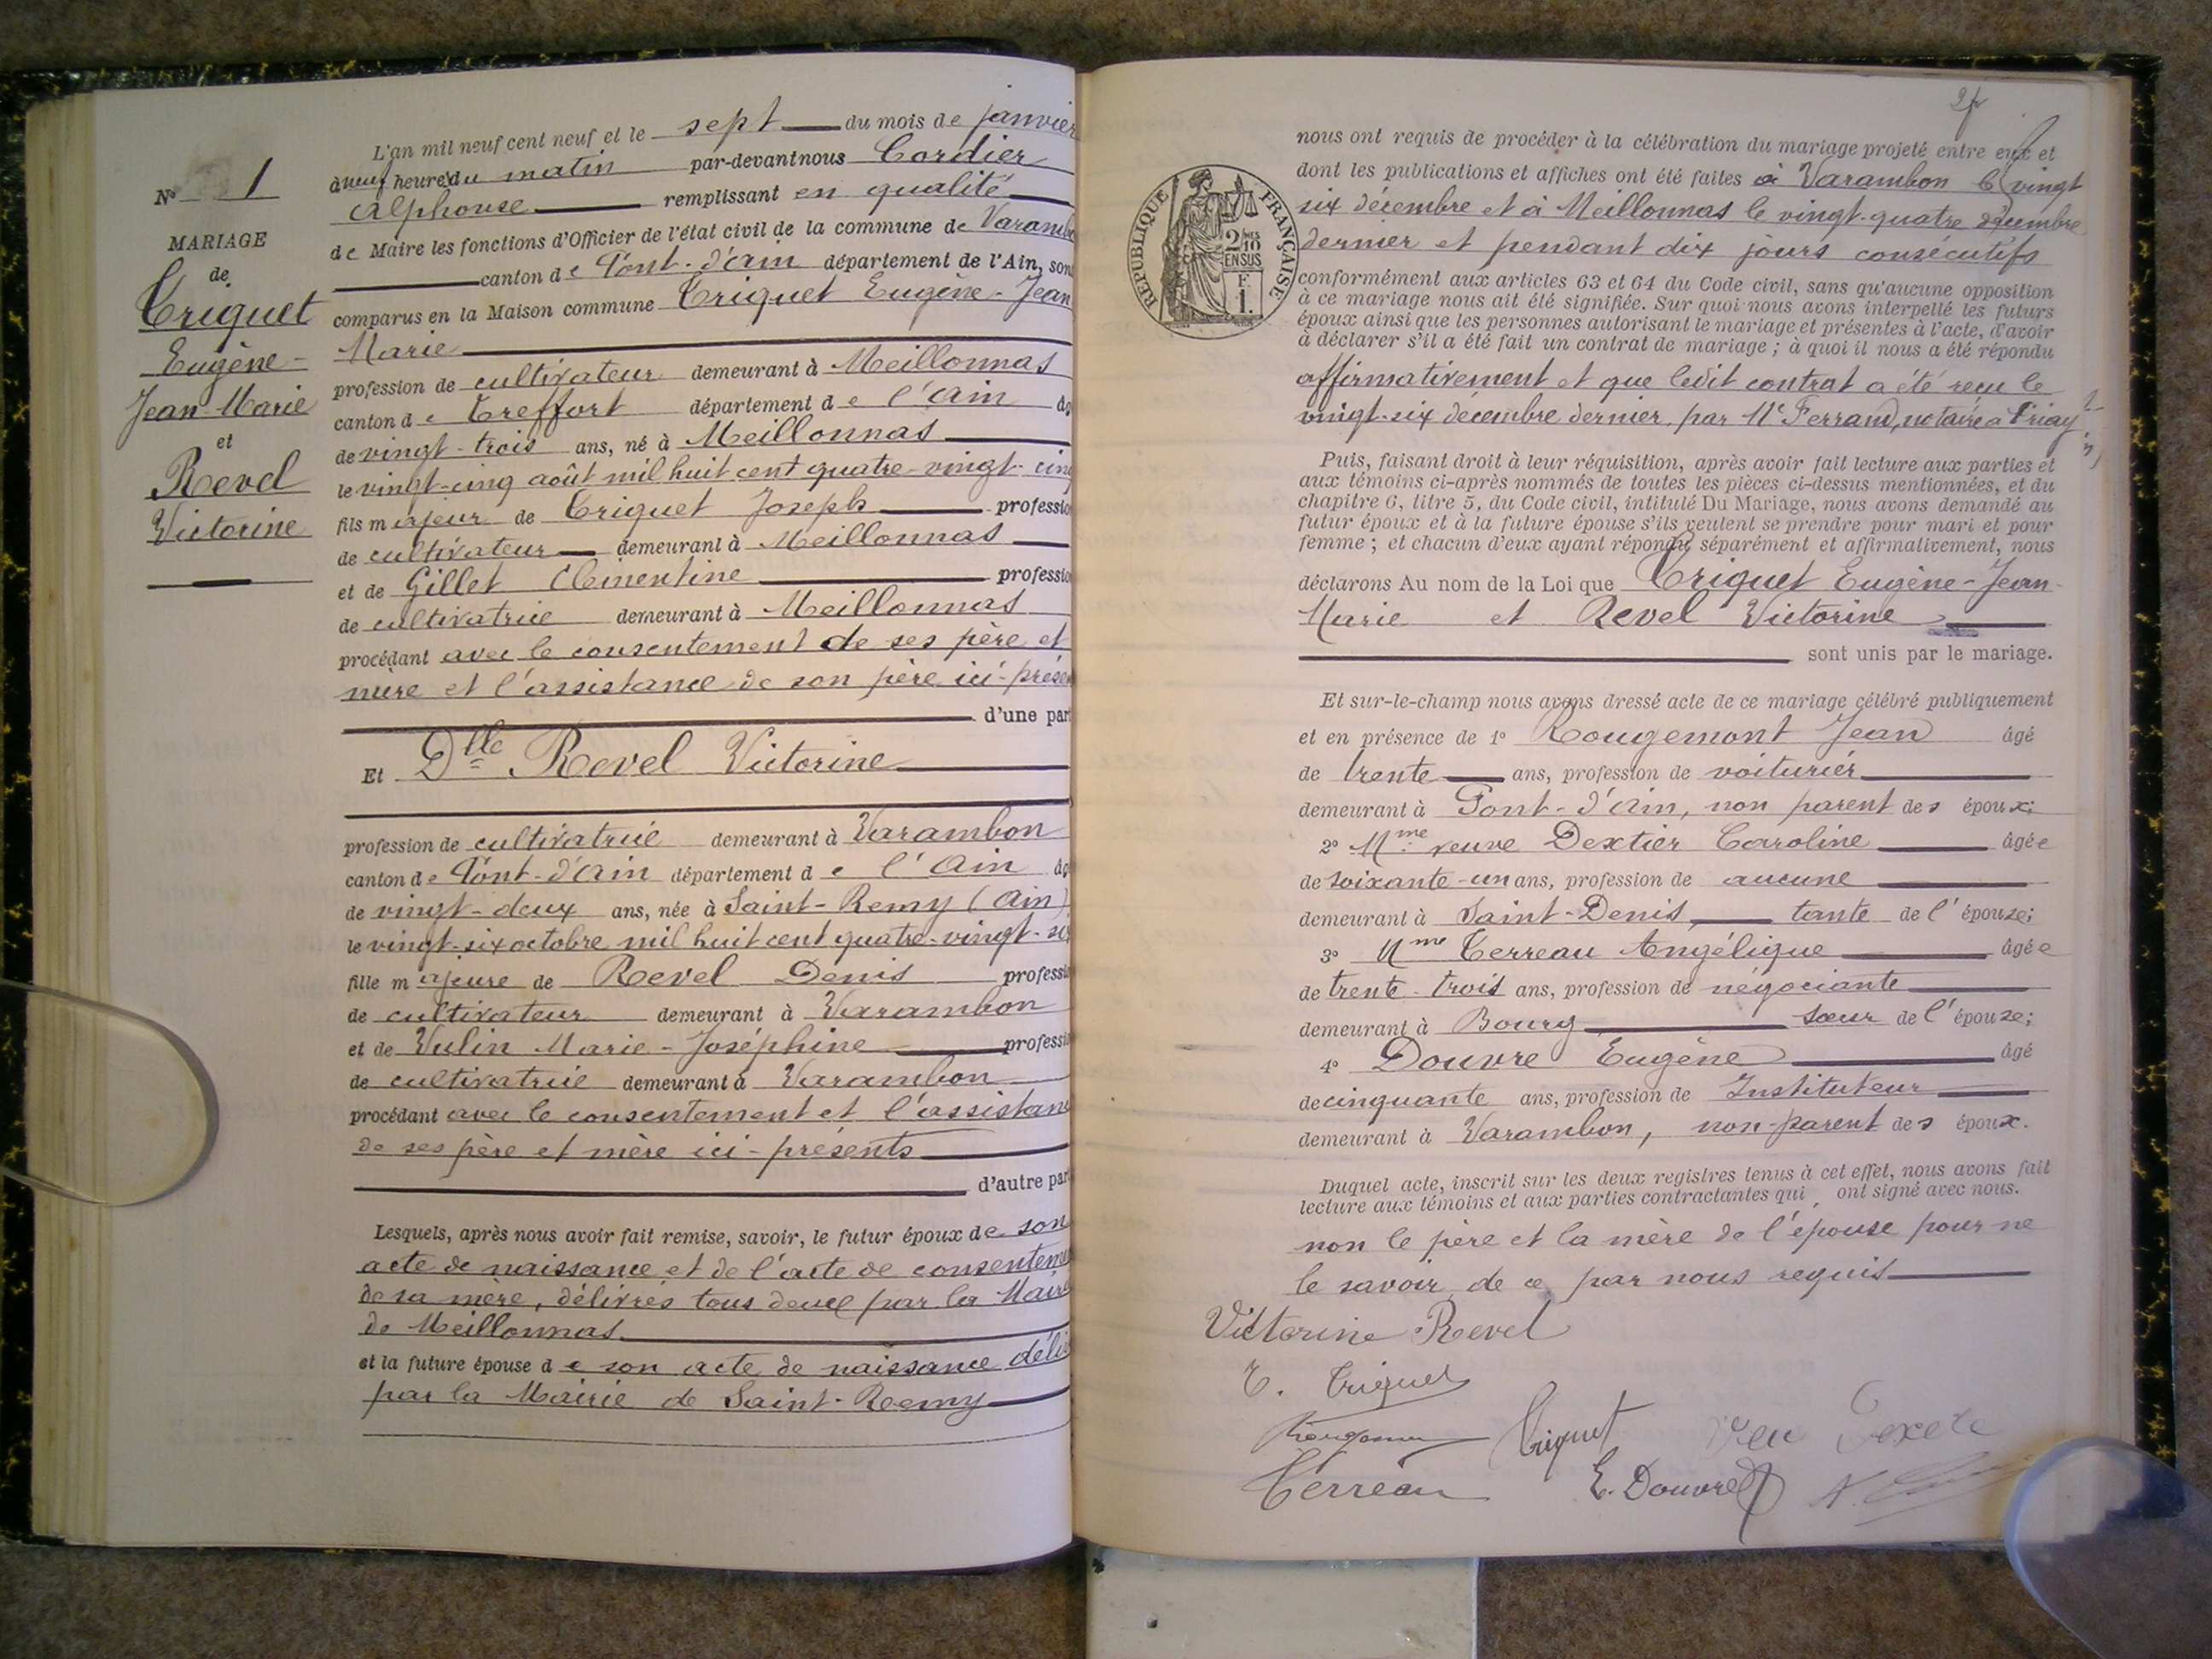 N° 1
MARIAGE
de
Triquet
Eugène-
Jean-Marie
et
Revel
Victorine
L'an mil neuf cent neuf et le sept du mois de janvier
à neuf heures du matin par-devant nous Cordier
Alphonse remplissant en qualité
de Maire les fonctions d'Officier de l'état civil de la commune de Varamb
canton de Pont-d'Ain département de l'Ain, son
comparus en la Maison commune Triquet Eugène-Jean
Marie
profession de cultivateur demeurant à Meillonnas
canton de Treffort département de l'Ain âg
de vingt-trois ans, né à Meillonnas
le vingt-cinq août mil huit cent quatre-vingt-cinq
fils majeur de Triquet Joseph professio
de cultivateur demeurant à Meillonnas
et de Gillet Clémentine professio
de cultivatrice demeurant à Meillonnas
procédant avec le consentement de ses père et
mère et l'assistance de son père ici-présen
d'une part
Et Dlle Revel Victorine
profession de cultivatrice demeurant à Varambon
canton de Pont-d'Ain département de l'Ain âg
de vingt-deux ans, née à Saint-Remy (Ain)
le vingt-six octobre mil huit cent quatre-vingt-six
fille majeure de Revel Denis professio
de cultivateur demeurant à Varambon
et de Vulin Marie-Joséphine professio
de cultivatrice demeurant à Varambon
procédant avec le consentement et l'assistanc
de ses père et mère ici-présents
d'autre part
Lesquels, après nous avoir fait remise, savoir, le futur époux de son
acte de naissance et de l'acte de consenteme
de sa mère, délivrés tous deux par la Mairie
de Meillonnas
et la future épouse de son acte de naissance déliv
par la Mairie de Saint-Remy
nous ont requis de procéder à la célébration du mariage projeté entre eux et
dont les publications et affiches ont été faites à Varambon le vingt
six décembre et à Meillonnas le vingt-quatre décembre
dernier et pendant dix jours consécutifs
RÉPUBLIQUE FRANÇAISE
2/10 MES
EN SUS
F.
1.
conformément aux articles 63 et 64 du Code civil, sans qu'aucune opposition
à ce mariage nous ait été signifiée. Sur quoi nous avons interpellé les futurs
époux ainsi que les personnes autorisant le mariage et présentes à l'acte, d'avoir
à déclarer s'il a été fait un contrat de mariage ; à quoi il nous a été répondu
affirmativement et que ledit contrat a été reçu le
vingt-six décembre dernier, par Me Ferrand, notaire à Priay
Puis, faisant droit à leur réquisition, après avoir fait lecture aux parties et
aux témoins ci-après nommés de toutes les pièces ci-dessus mentionnées, et du
chapitre 6, titre 5, du Code civil, intitulé Du Mariage, nous avons demandé au
futur époux et à la future épouse s'ils veulent se prendre pour mari et pour
femme ; et chacun d'eux ayant répondu séparément et affirmativement, nous
déclarons Au nom de la Loi que Triquet Eugène-Jean-
Marie et Revel Victorine
sont unis par le mariage.
Et sur-le-champ nous avons dressé acte de ce mariage célébré publiquement
et en présence de 1° Rougemont Jean âgé
de trente ans, profession de voiturier
demeurant à Pont-d'Ain, non parent des époux;
2° Mme veuve Dextier Caroline âgée
de soixante-un ans, profession de aucune
demeurant à Saint-Denis, tante de l'épouse;
3° Mme Terreau Angélique âgée
de trente-trois ans, profession de négociante
demeurant à Bourg sœur de l'épouse;
4° Douvre Eugène âgé
de cinquante ans, profession de Instituteur
demeurant à Varambon, non-parent des époux.
Duquel acte, inscrit sur les deux registres tenus à cet effet, nous avons fait
lecture aux témoins et aux parties contractantes qui ont signé avec nous.
non le père et la mère de l'épouse pour ne
le savoir, de ce par nous requis
Victorine Revel
E. Triquet
Triquet
Terreau
E. Douvre